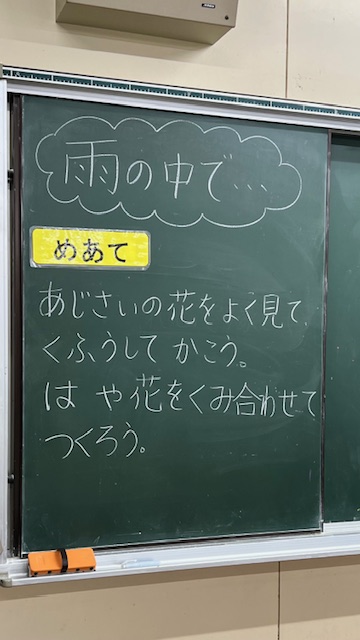 雨の中で…
めあて
あじさいの花をよく見て、
くふうして かこう。
は や花をくみ合わせて
つくろう。